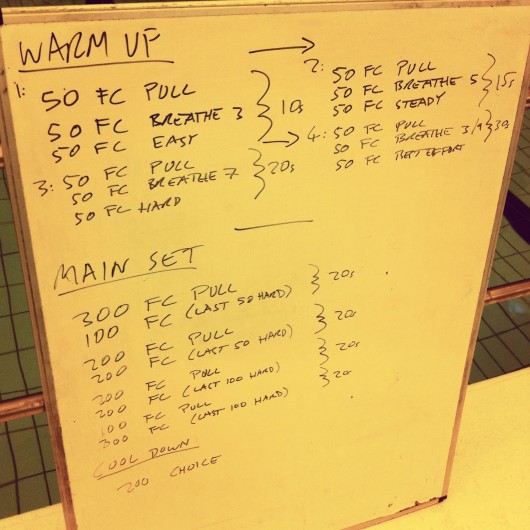 WARM UP
1: 50 FC PULL
50 FC BREATHE 3
50 FC EASY
10s
2: 50 FC PULL
50 FC BREATHE 5
50 FC STEADY
15s
3: 50 FC PULL
50 FC BREATHE 7
50 FC HARD
20s
4: 50 FC PULL
50 FC BREATHE 3/9
50 FC BEST EFFORT
30s
MAIN SET
300 FC PULL
100 FC (LAST 50 HARD)
20s
200 FC PULL
200 FC (LAST 50 HARD)
20s
200 FC PULL
200 FC (LAST 100 HARD)
20s
100 FC PULL
300 FC (LAST 100 HARD)
20s
COOL DOWN
200 CHOICE